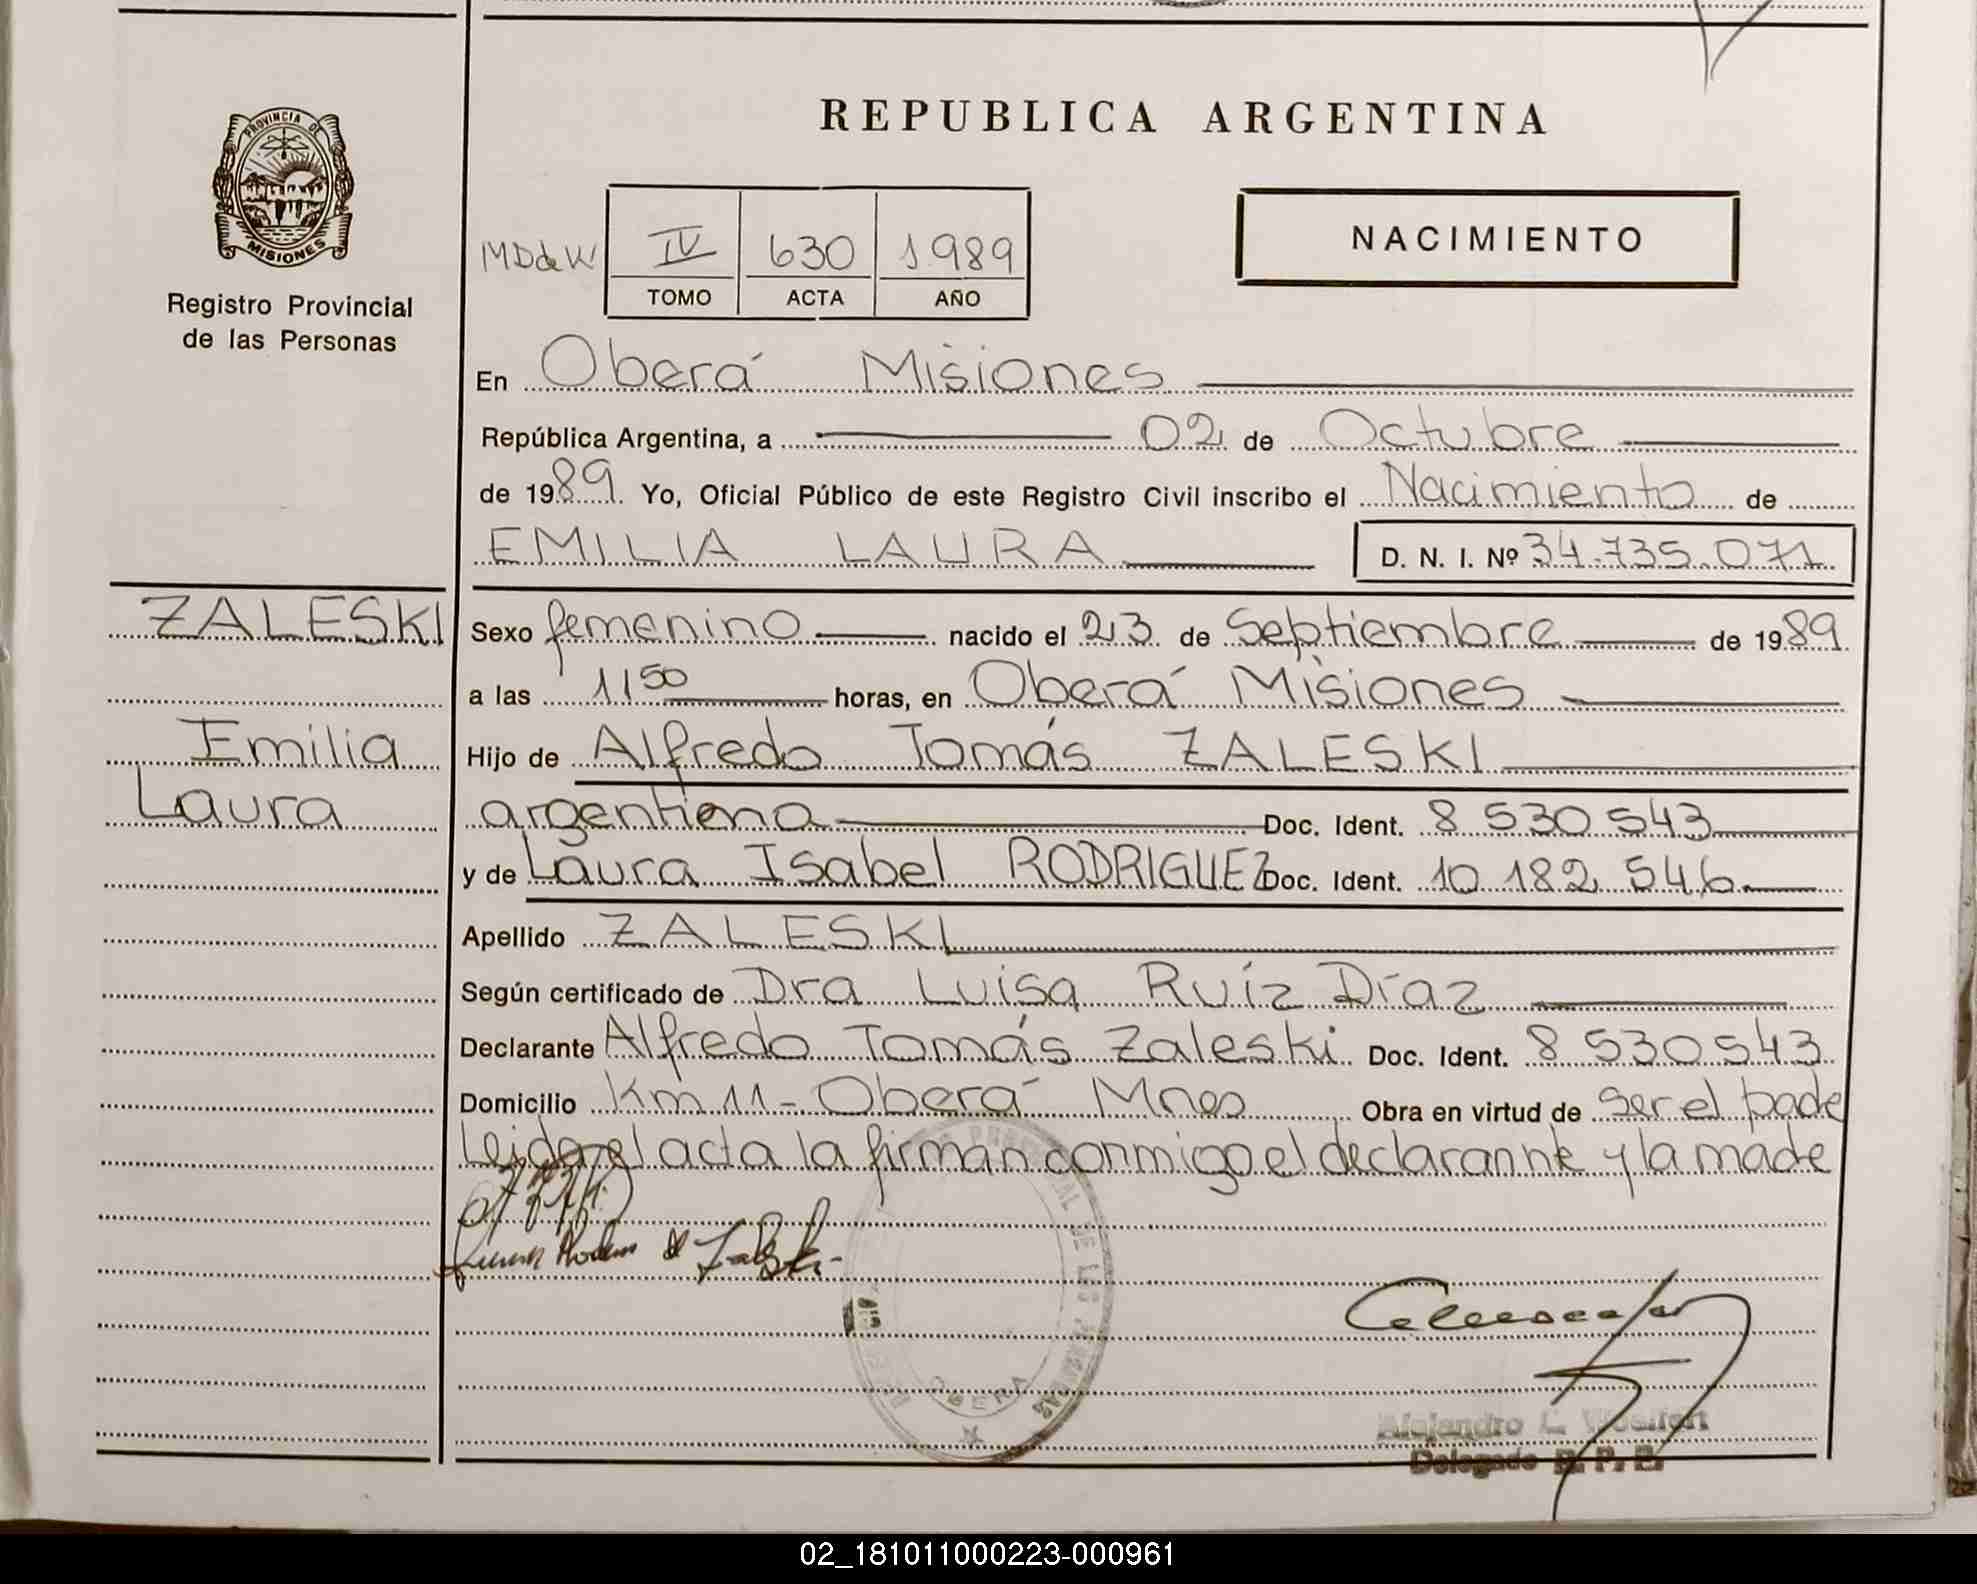 REPUBLICA ARGENTINA
PROVINCIA DE
MISIONES
Registro Provincial
de las Personas
IV 630 1989
TOMO ACTA AÑO
NACIMIENTO
En Oberá Misiones
República Argentina, a 02 de Octubre
de 1989. Yo, Oficial Público de este Registro Civil inscribo el Nacimiento de
EMILIA LAURA D. N. I. Nº 34.735.071
ZALESKI
Emilia
Laura
Sexo femenino nacido el 23 de Septiembre de 1989
a las 11 50 horas, en Oberá Misiones
Hijo de Alfredo Tomás ZALESKI
argentina Doc. Ident. 8 530 543
y de Laura Isabel RODRIGUEZ Doc. Ident. 10 182 546
Apellido ZALESKI
Según certificado de Dra Luisa Ruíz Díaz
Declarante Alfredo Tomás Zaleski Doc. Ident. 8 530 543
Domicilio Km 11 - Oberá Mnes Obra en virtud de ser el padre
Leida el acta la firman conmigo el declarante y la madre
de Zaleski
OBERA
Alejandro C.
Delegado R. P. P.
02_181011000223-000961